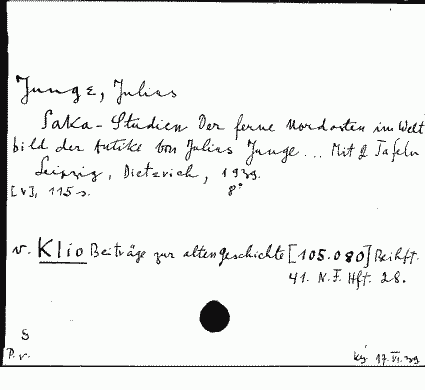 Junge, Julius
Saka-Studien Der ferne Nordosten im Welt
bild der Antike von Julius Junge... Mit 2 Tafeln
Leipzig, Dieterich, 1939.
[V], 115 S. 8°
v. Klio Beiträge zur alten Geschichte [105.080] Beihft.
41. N.F. Hft. 28.
S
P.v. 17.VI.39